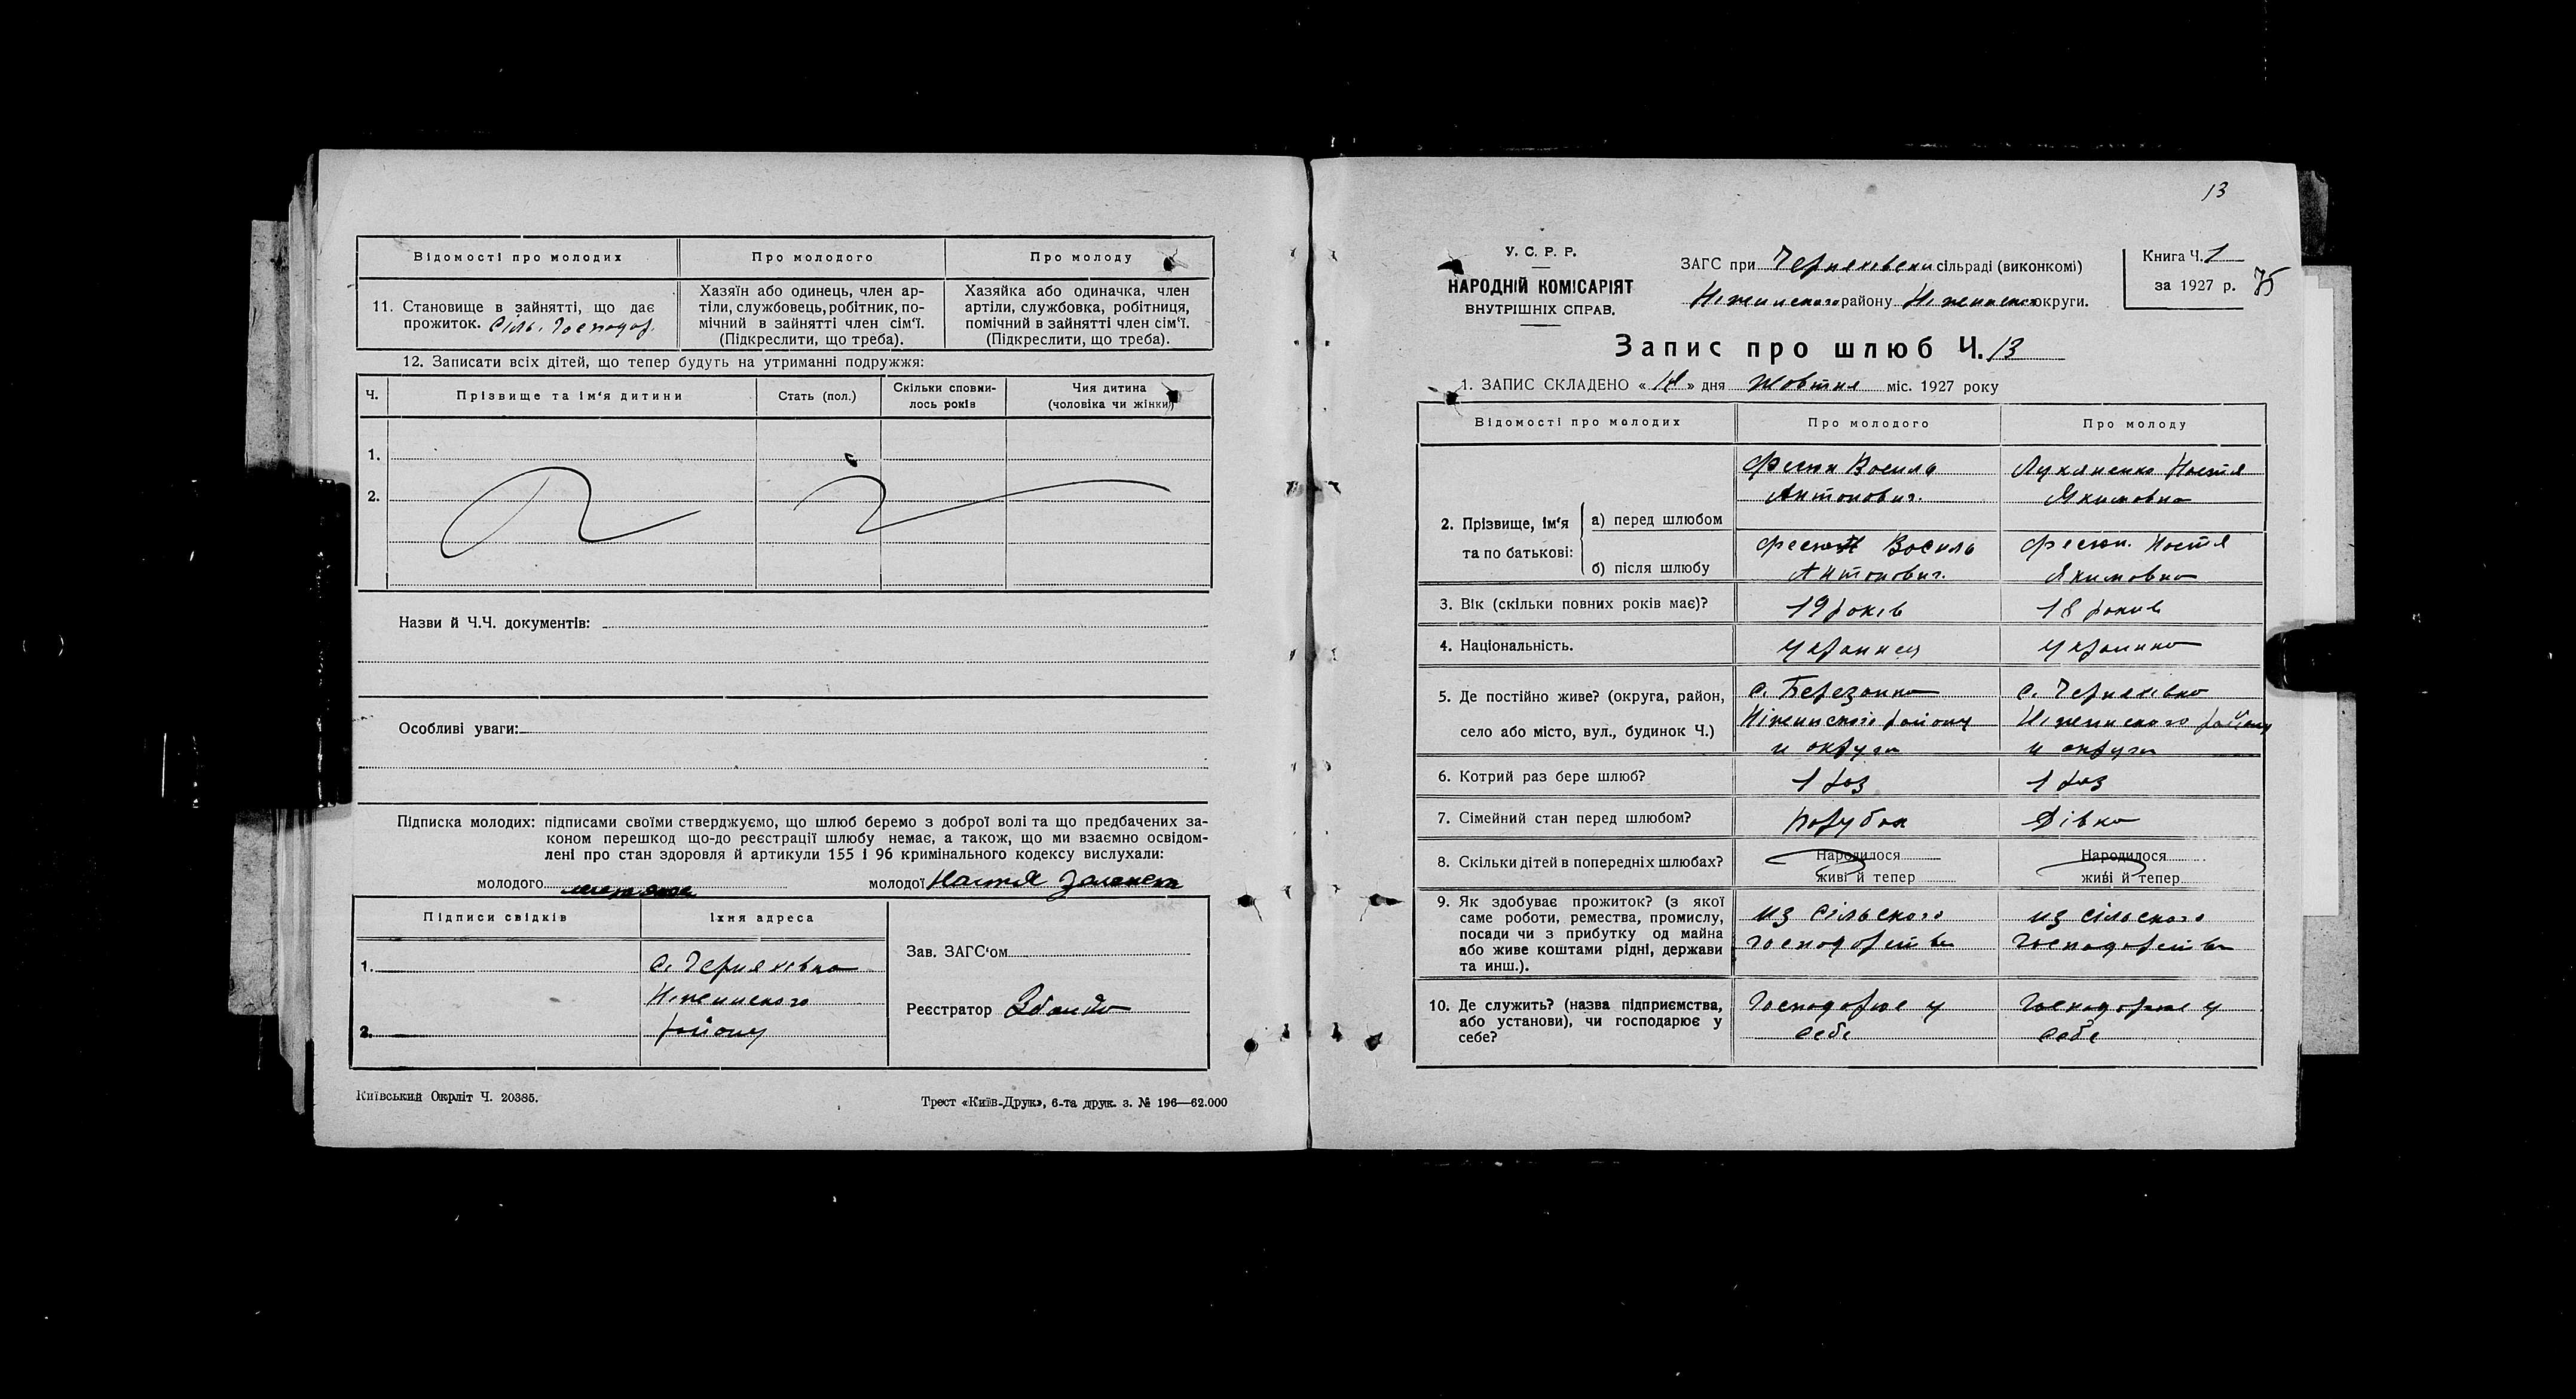 Відомості про молодих
Про молодого
Про молоду
11. Становище в зайнятті, що дає
прожиток. Сіль. Господар.
Хазяїн або одинець, член ар-
тіли, службовець, робітник, по-
мічний в зайнятті член сім'ї.
(Підкреслити, що треба).
Хазяйка або одиначка, член
артіли, службовка, робітниця,
помічний в зайнятті член сім'ї.
(Підкреслити, що треба).
12. Записати всіх дітей, що тепер будуть на утриманні подружжя:
Ч.
Прізвище та ім'я дитини
Стать (пол.)
Скільки сповни-
лось років
Чия дитина
(чоловіка чи жінки)
1.
2.
Назви й Ч.Ч. документів:
Особливі уваги:
Підписка молодих: підписами своїми стверджуємо, що шлюб беремо з доброї волі та що предбачених за-
коном перешкод що-до реєстрації шлюбу немає, а також, що ми взаємно освідом-
лені про стан здоровля й артикули 155 і 96 кримінального кодексу вислухали:
молодого
молодої Настя
Підписи свідків
Їхня адреса
1.
с. Черняхівка
Ніжинского
2.
району
Зав. ЗАГС'ом
Реєстратор
Київський Окрліт Ч. 20385.
Трест «Київ-Друк», 6-та друк. з. № 196—62.000
13
У. С. Р. Р.
НАРОДНІЙ КОМІСАРІЯТ
ВНУТРІШНІХ СПРАВ.
ЗАГС при Черняховски сільраді (виконкомі)
Ніжинского району Ніжинского округи.
Книга Ч. 1
за 1927 р.
75
Запис про шлюб Ч. 13
1. ЗАПИС СКЛАДЕНО « 18 » дня Жовтня міс. 1927 року
Відомості про молодих
Про молодого
Про молоду
2. Прізвище, ім'я
та по батькові:
а) перед шлюбом
Василь
Антонович.
Лукяненко Настя
Якимовна
б) після шлюбу
Василь
Антонович.
Настя
Якимовна
3. Вік (скільки повних років має)?
19 років
18 років
4. Національність.
українец
українка
5. Де постійно живе? (округа, район,
село або місто, вул., будинок Ч.)
с. Березанка
Ніжинского району
и округи
с. Черняхівка
Ніжинского району
и округи
6. Котрий раз бере шлюб?
1 раз
1 раз
7. Сімейний стан перед шлюбом?
Парубок
Дівка
8. Скільки дітей в попередніх шлюбах?
Народилося
живі й тепер
Народилося
живі й тепер
9. Як здобуває прожиток? (з якої
саме роботи, ремества, промислу,
посади чи з прибутку од майна
або живе коштами рідні, держави
та инш.).
из сільского
господарства
из сільского
господарства
10. Де служить? (назва підприємства,
або установи), чи господарює у
себе?
Господарює у
себе
Господарює у
себе